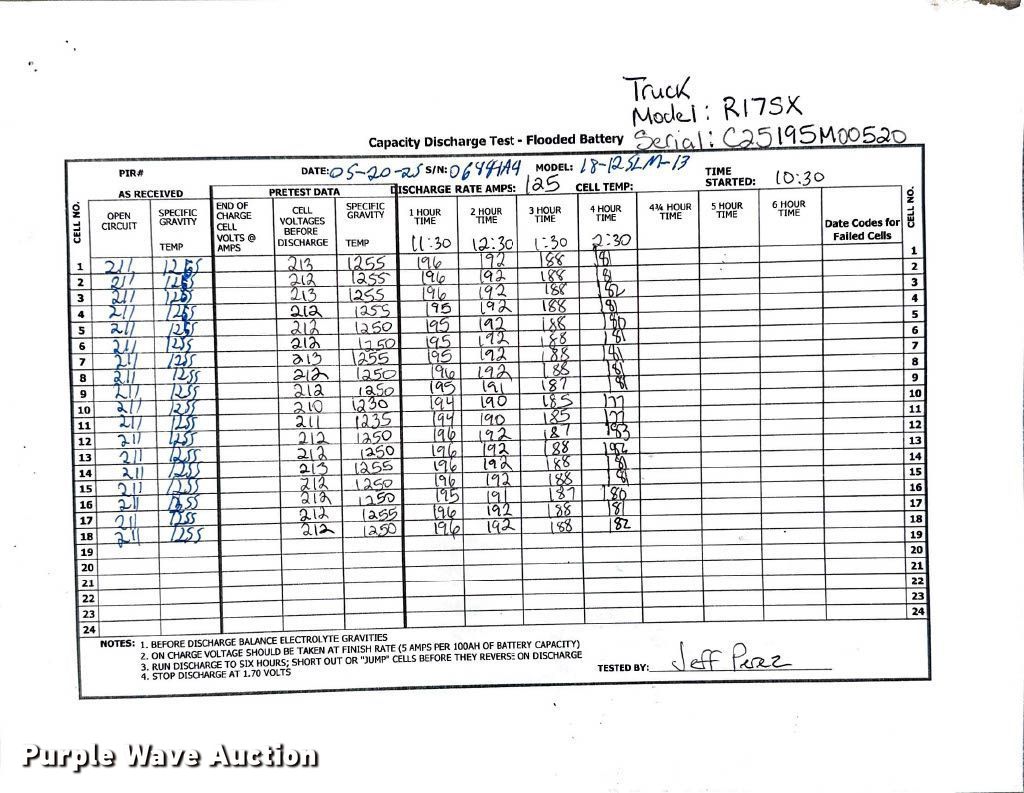 Truck
Model: R17SX
Capacity Discharge Test - Flooded Battery Serial: C25195M00520
PIR# DATE: 05-20-25 S/N: MODEL: 18-125LM-13 TIME STARTED: 10:30
AS RECEIVED PRETEST DATA DISCHARGE RATE AMPS: 125 CELL TEMP:
CELL NO. OPEN CIRCUIT SPECIFIC GRAVITY TEMP END OF CHARGE CELL VOLTS @ AMPS CELL VOLTAGES BEFORE DISCHARGE SPECIFIC GRAVITY TEMP 1 HOUR TIME 2 HOUR TIME 3 HOUR TIME 4 HOUR TIME 4¾ HOUR TIME 5 HOUR TIME 6 HOUR TIME Date Codes for Failed Cells CELL NO.
11:30 12:30 1:30 2:30
1 211 1255 213 1255 196 192 188 181 1
2 211 1255 212 1255 196 192 188 181 2
3 211 1255 213 1255 196 192 188 182 3
4 211 1265 212 1255 195 192 188 181 4
5 211 1265 212 1250 195 192 188 180 5
6 211 1255 212 1250 195 192 188 181 6
7 211 1255 213 1255 195 192 188 181 7
8 211 1255 212 1250 196 192 188 181 8
9 211 1255 212 1250 195 191 187 181 9
10 211 1255 210 1230 194 190 185 177 10
11 211 1255 211 1235 194 190 185 177 11
12 211 1255 212 1250 196 192 187 183 12
13 211 1255 212 1250 196 192 188 182 13
14 211 1255 213 1255 196 192 188 181 14
15 211 1255 212 1250 196 192 188 181 15
16 211 1255 212 1250 195 191 187 180 16
17 211 1255 212 1255 196 192 188 181 17
18 211 1255 212 1250 196 192 188 182 18
19 19
20 20
21 21
22 22
23 23
24 24
NOTES: 1. BEFORE DISCHARGE BALANCE ELECTROLYTE GRAVITIES
2. ON CHARGE VOLTAGE SHOULD BE TAKEN AT FINISH RATE (5 AMPS PER 100AH OF BATTERY CAPACITY)
3. RUN DISCHARGE TO SIX HOURS; SHORT OUT OR "JUMP" CELLS BEFORE THEY REVERSE ON DISCHARGE
4. STOP DISCHARGE AT 1.70 VOLTS
TESTED BY: Jeff Perez
Purple Wave Auction